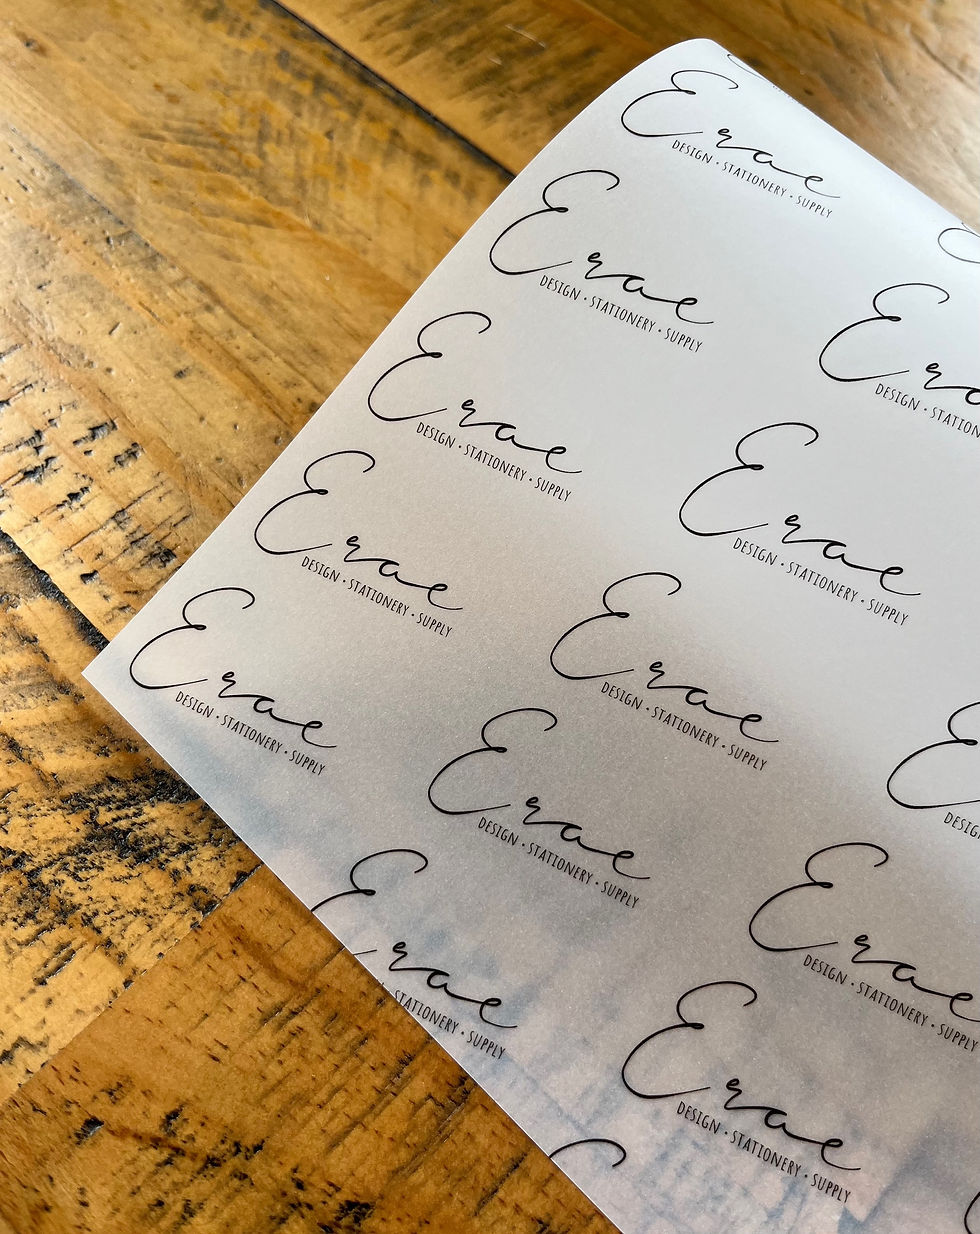 Erae
DESIGN • STATIONERY • SUPPLY
Erae
DESIGN • STATIONERY • SUPPLY
Era
DESIGN • STATION
Erae
DESIGN • STATIONERY • SUPPLY
Erae
DESIGN • STATIONERY • SUPPLY
Erae
DESIGN • STATIONERY • SUPPLY
Erae
DESIGN • STATIONERY • SUPPLY
Erae
DESIGN • STATIONERY • SUPPLY
E
DESIG
Erae
DESIGN • STATIONERY • SUPPLY
Erae
DESIGN • STATIONERY • SUPPLY
Erae
STATIONERY • SUPPLY
Erae
DESIGN • STATIONERY • SUPPLY